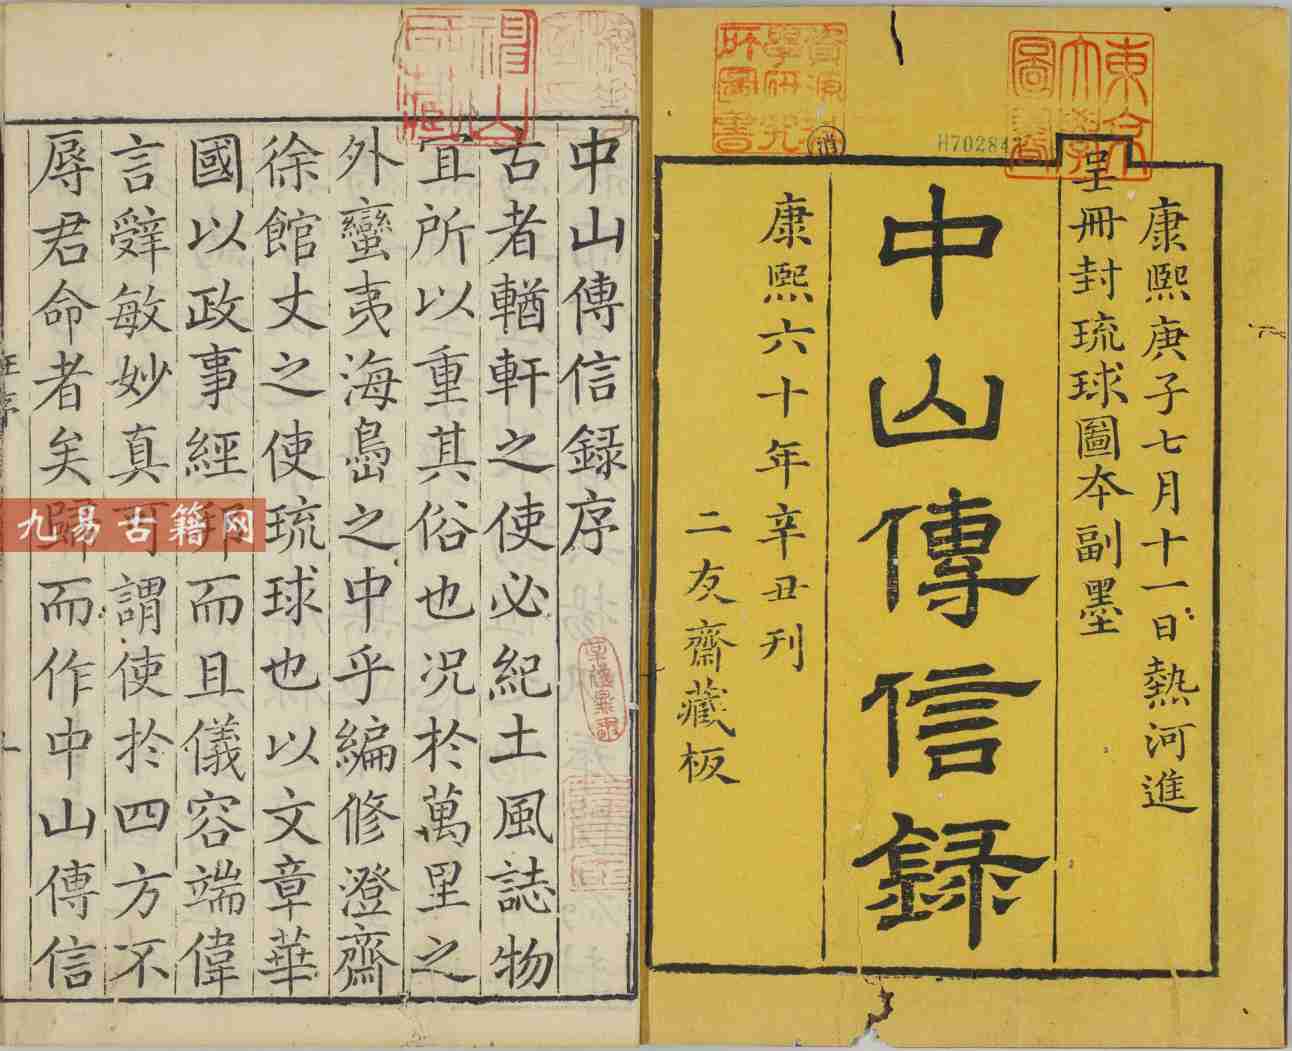 康熙庚子七月十一日熱河進
呈冊封琉球圖本副墨
中山傳信録
康熙六十年辛丑刊
二友齋藏板
H70284
中山傳信録序
古者輶軒之使必紀土風誌物
宜所以重其俗也况於萬里之
外蠻夷海島之中乎編修澄齋
徐館丈之使琉球也以文章華
國以政事經邦而且儀容端偉
言辤敏妙真可謂使於四方不
辱君命者矣歸而作中山傳信
九易古籍网